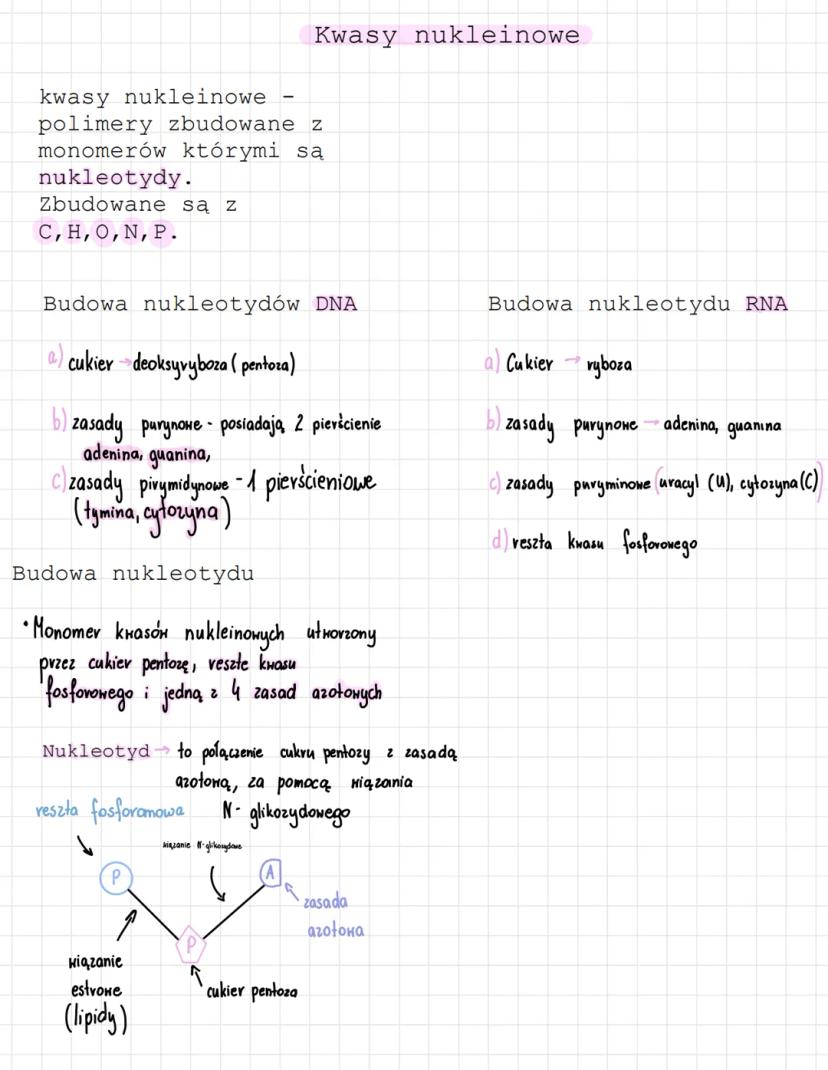 Kwasy nukleinowe
kwasy nukleinowe -
polimery zbudowane z
monomerów którymi są
nukleotydy.
Zbudowane są z
C,H,O,N,P.
Budowa nukleotydów DNA
a) cukier → deoksyryboza (pentoza)
b) zasady purynowe - posiadają 2 pierścienie
adenina, guanina,
c) zasady pirymidynowe - 1 pierścieniowe
(tymina, cytozyna)
Budowa nukleotydu RNA
a) Cukier → ryboza
b) zasady purynowe → adenina, guanina
c) zasady puryminowe (uracyl (U), cytozyna (C))
d) reszta kwasu fosforowego
Budowa nukleotydu
• Monomer kwasów nukleinowych utworzony
przez cukier pentozę, resztę kwasu
fosforowego i jedną z 4 zasad azotowych
Nukleotyd → to połączenie cukru pentozy z zasadą
azotową, za pomocą wiązania
N- glikozydowego
reszta fosforanowa
wiązanie N-glikozydowe
P
A
zasada
azotowa
P
wiązanie
estrowe
(lipidy)
cukier pentoza